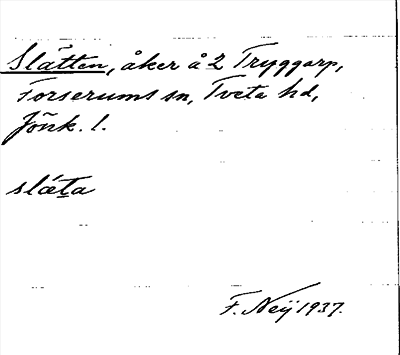 Slätten, åker å 2 Tryggarp,
Forserums sn, Tveta hd,
Jönk. l.
slǽta
F. Neij 1937.